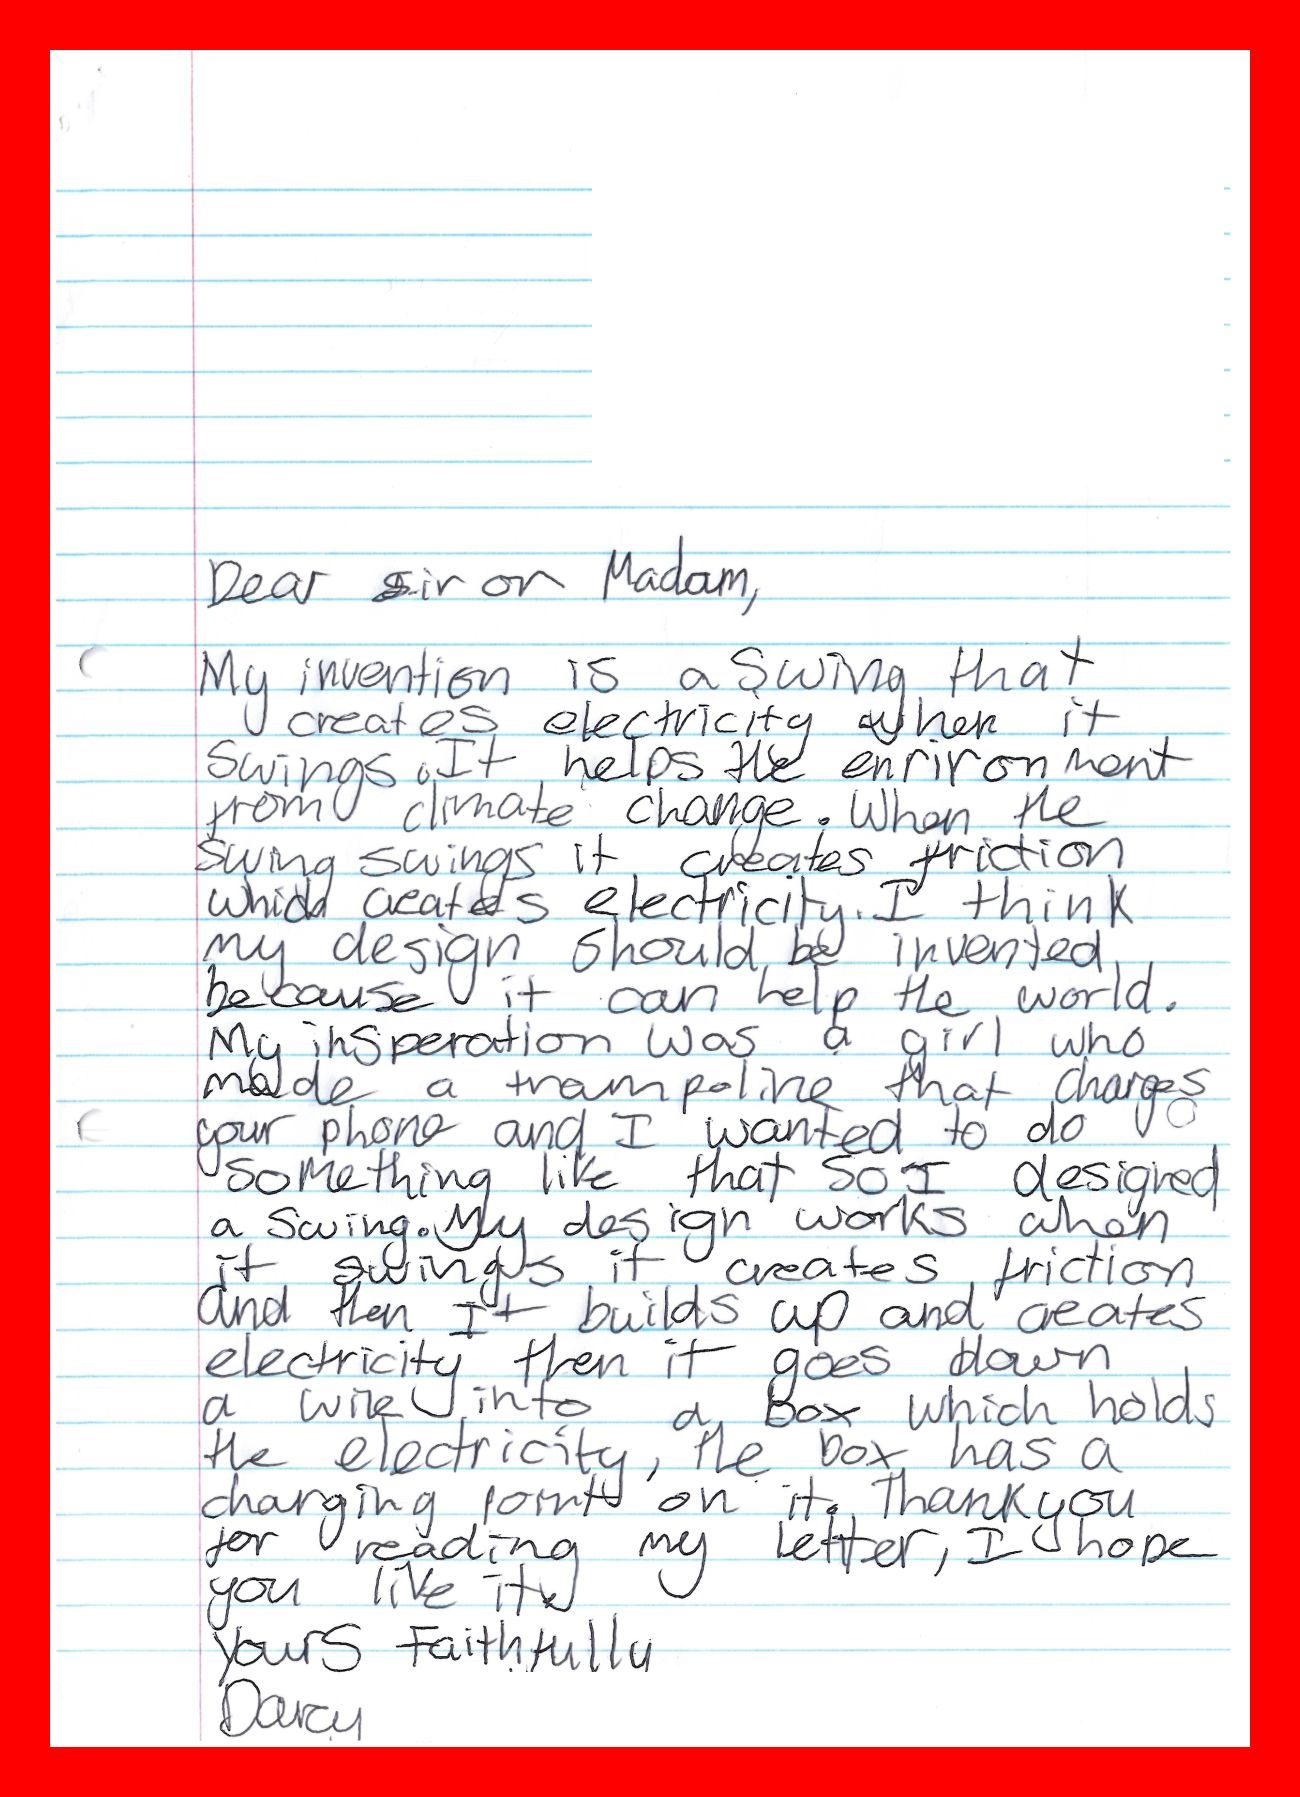 Dear sir or Madam,
My invention is a swing that
creates electricity when it
swings. It helps the enrironment
from climate change. When the
swing swings it creates friction
which creates electricity. I think
my design should be invented
because it can help the world.
My insperation was a girl who
made a trampoline that charges
your phone and I wanted to do
something like that so I designed
a swing. My design works when
it swings it creates friction
and then It builds up and creates
electricity then it goes down
a wire into a box which holds
the electricity, the box has a
charging point on it. Thankyou
for reading my letter, I hope
you like it.
Yours Faithfully
Darcy